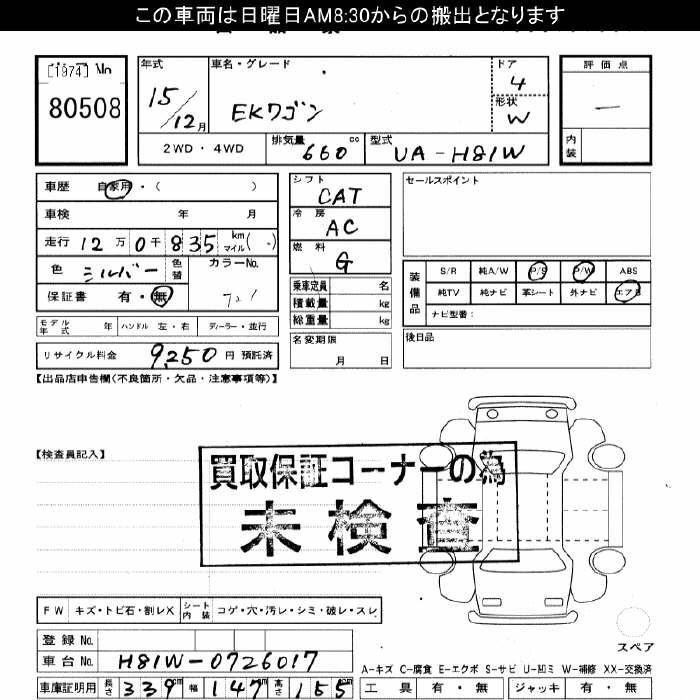 この車両は日曜日AM8:30からの搬出となります
[1974] No
80508
年式
15/12月
車名・グレード
EKワゴン
ドア
4
形状
W
評価点
—
内装
2WD・4WD
排気量 660 cc
型式 UA-H81W
車歴 自家用・( )
車検 年 月
走行 12万0千835 km マイル( )
色 シルバー 色替
カラーNo.
保証書 有・無
モデル年式 年 ハンドル 左・右 ディーラー・並行
リサイクル料金 9,250 円 預託済
シフト
CAT
冷房
AC
燃料
G
乗車定員 名
積載量 kg
総重量 kg
名変期限
月 日
セールスポイント
装備品
S/R 純A/W P/S P/W ABS
純TV 純ナビ 革シート 外ナビ エアB
ナビ型番:
後日品
【出品店申告欄(不良箇所・欠品・注意事項等)】
【検査員記入】
買取保証コーナーの為
未検査
FW キズ・トビ石・割レX シート内装 コゲ・穴・汚レ・シミ・破レ・スレ
スペア
登録No.
車台No. H81W-0726017
車庫証明用 長さ 339cm 幅 147cm 高さ 155cm
A-キズ C-腐食 E-エクボ S-サビ U-凹ミ W-補修 XX-交換済
工具 有・無 ジャッキ 有・無